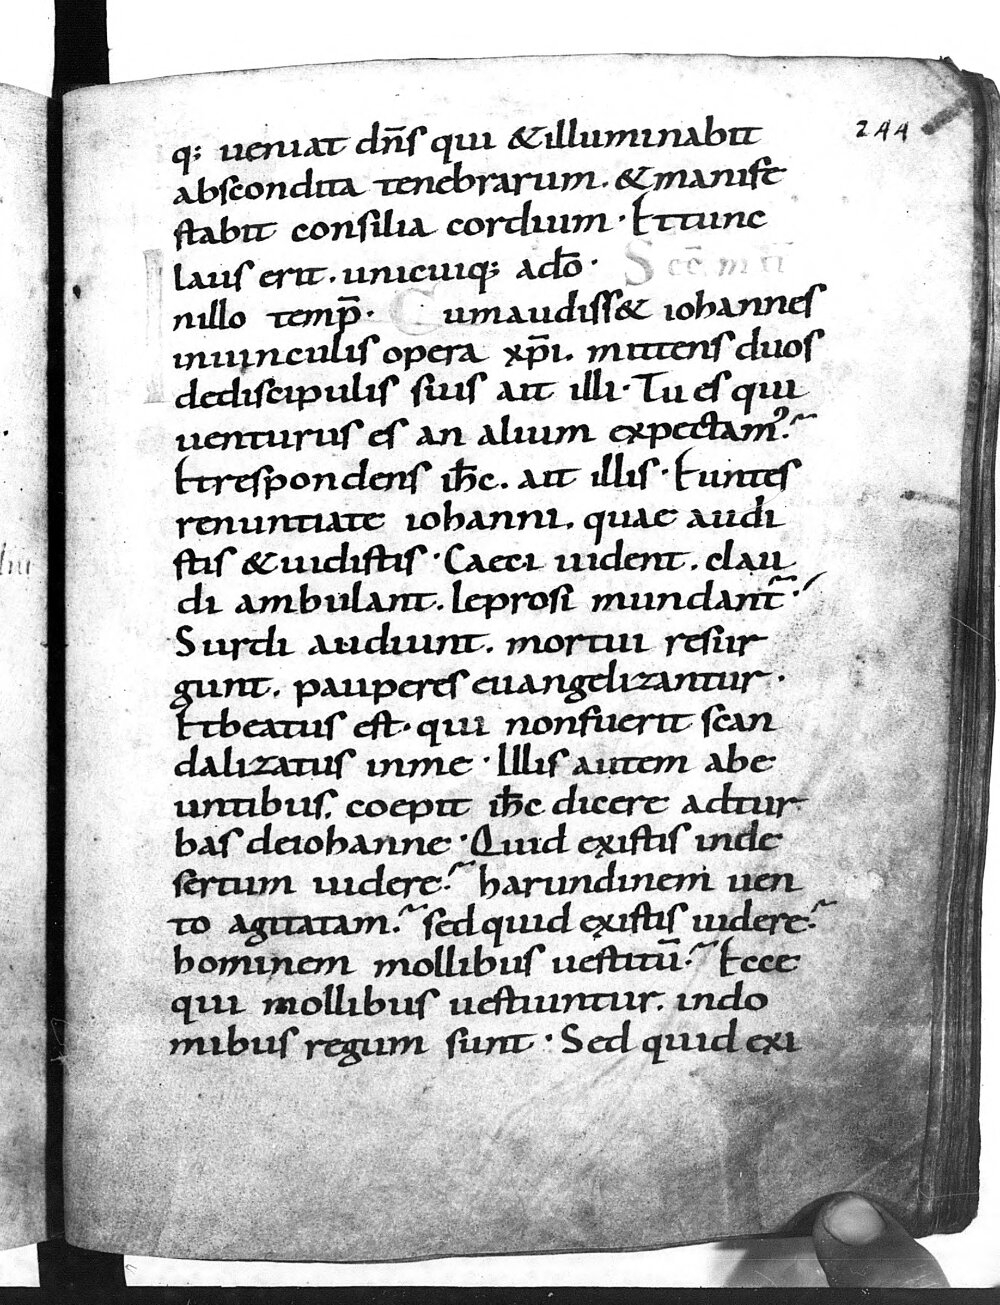 244
q; ueniat dn̄s qui &illuminabit
abscondita tenebrarum. &manife
stabit consilia cordium · Et tunc
laus erit. unicuiq; ado̅ · Scd̄. mt̄
I nillo temp̄. Cumaudiss& iohannes
inuinculis opera xp̄i. mittens duos
dediscipulis suis ait illi · Tu es qui
uenturus es an alium expectam᾿?
Et respondens ih̄c. ait illis · Euntes
renuntiate iohanni. quae audi
stis &uidistis · Caeci uident. clau
di ambulant. leprosi mundant̄ ·
Surdi audiunt. mortui resur
gunt. pauperes euangelizantur ·
Et beatus est · qui nonfuerit scan
dalizatus inme · Illis autem abe
untibus. coepit ih̄c dicere adtur
bas deiohanne · Quid existis inde
sertum uidere? harundinem uen
to agitatam? sed quid existis uidere?
hominem mollibus uestitū? Ecce
qui mollibus uestiuntur. indo
mibus regum sunt · Sed quid exi